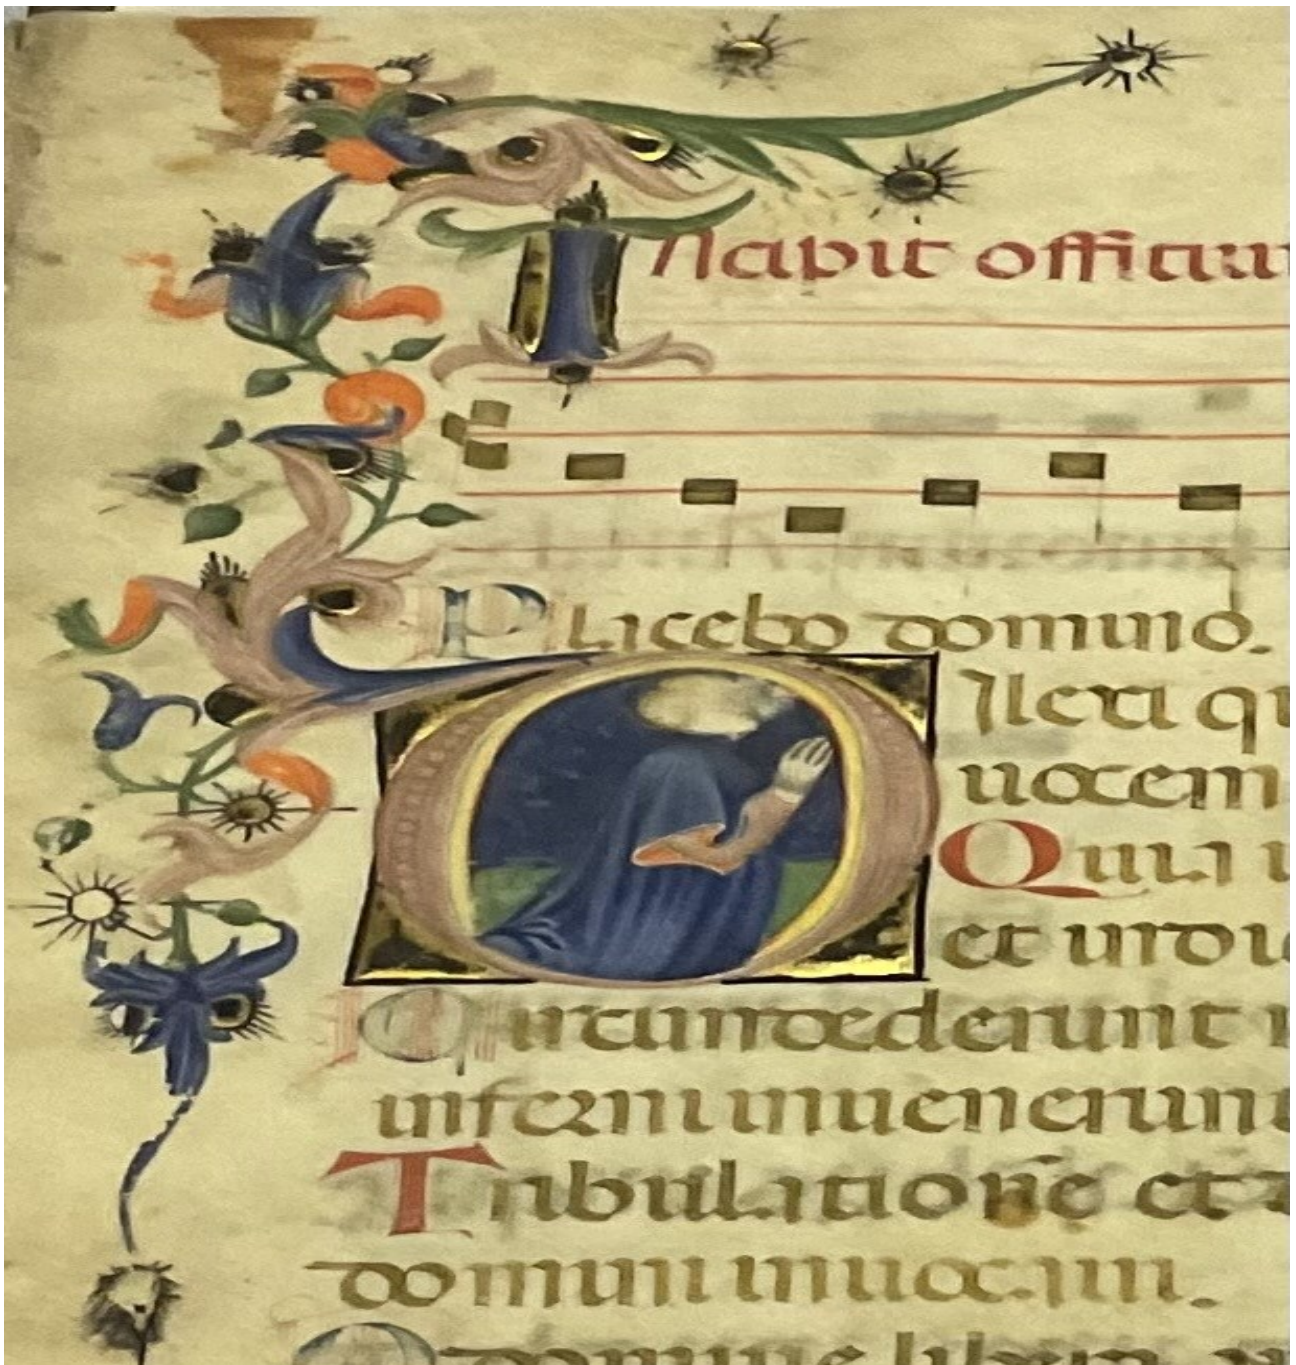 INcipit officiu
Placebo domino.
Dilexi qu
uocem
Quia i
et in di
Circumdederunt
inferni inuenerunt
Tribulatione et
domini inuocaui.
O domine libera